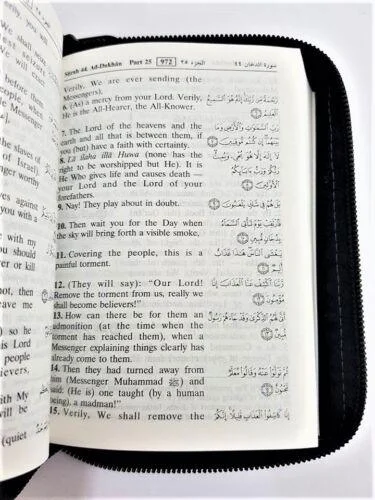 Verily, you h
we shall
before them
when
Messenger
the slaves of
of Israel).
ger worthy
es against
you with a
with my
u should
er or kill
not, then
eave me
) so he
is Lord
people
ievers.
th My
will be
(quiet
Sûrah 44. Ad-Dukhân Part 25 972 الجزء ٢٥ سورة الدخان ٤٤
Verily, We are ever sending (the
Messengers),
6. (As) a mercy from your Lord. Verily,
He is the All-Hearer, the All-Knower.
7. The Lord of the heavens and the
earth and all that is between them, if
you (but) have a faith with certainty.
8. Lâ ilaha illâ Huwa (none has the
right to be worshipped but He). It is
He Who gives life and causes death —
your Lord and the Lord of your
forefathers.
9. Nay! They play about in doubt.
10. Then wait you for the Day when
the sky will bring forth a visible smoke,
11. Covering the people, this is a
painful torment.
12. (They will say): “Our Lord!
Remove the torment from us, really we
shall become believers!”
13. How can there be for them an
admonition (at the time when the
torment has reached them), when a
Messenger explaining things clearly has
already come to them.
14. Then they had turned away from
him (Messenger Muhammad ﷺ) and
said: (He is) one taught (by a human
being), a madman!”
15. Verily, We shall remove the
رَحْمَةً مِّن رَّبِّكَ إِنَّهُ هُوَ السَّمِيعُ
الْعَلِيمُ
رَبِّ السَّمَٰوَٰتِ وَالْأَرْضِ وَمَا
بَيْنَهُمَا إِن كُنتُم مُّوقِنِينَ
لَا إِلَٰهَ إِلَّا هُوَ يُحْيِي وَيُمِيتُ
رَبُّكُمْ وَرَبُّ ءَابَائِكُمُ
الْأَوَّلِينَ
بَلْ هُمْ فِي شَكٍّ يَلْعَبُونَ
فَارْتَقِبْ يَوْمَ تَأْتِي السَّمَاءُ
بِدُخَانٍ مُّبِينٍ
يَغْشَى النَّاسَ هَٰذَا عَذَابٌ
أَلِيمٌ
رَّبَّنَا اكْشِفْ عَنَّا الْعَذَابَ إِنَّا
مُؤْمِنُونَ
أَنَّىٰ لَهُمُ الذِّكْرَىٰ وَقَدْ جَاءَهُمْ رَسُولٌ
مُّبِينٌ
ثُمَّ تَوَلَّوْا عَنْهُ وَقَالُوا مُعَلَّمٌ
مَّجْنُونٌ
إِنَّا كَاشِفُوا الْعَذَابِ قَلِيلًا إِنَّكُمْ